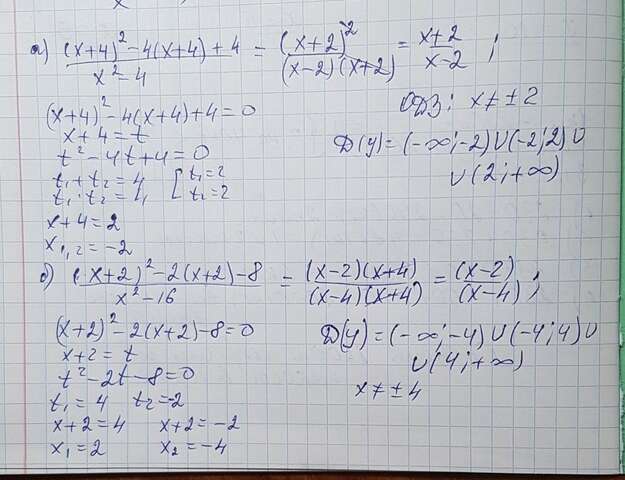 а) ((x+4)² - 4(x+4) + 4)/(x² - 4) = (x+2)²/((x-2)(x+2)) = (x+2)/(x-2) ;
(x+4)² - 4(x+4) + 4 = 0
x+4 = t
t² - 4t + 4 = 0
t₁ + t₂ = 4 [ t₁ = 2
t₁ · t₂ = 4, t₂ = 2
x+4 = 2
x₁,₂ = -2
ОДЗ: x ≠ ± 2
D(y) = (-∞; -2) ∪ (-2; 2) ∪
∪ (2; +∞)
б) ((x+2)² - 2(x+2) - 8)/(x² - 16) = ((x-2)(x+4))/((x-4)(x+4)) = (x-2)/(x-4) ;
(x+2)² - 2(x+2) - 8 = 0
x+2 = t
t² - 2t - 8 = 0
t₁ = 4 t₂ = -2
x+2 = 4 x+2 = -2
x₁ = 2 x₂ = -4
D(y) = (-∞; -4) ∪ (-4; 4) ∪
∪ (4; +∞)
x ≠ ± 4